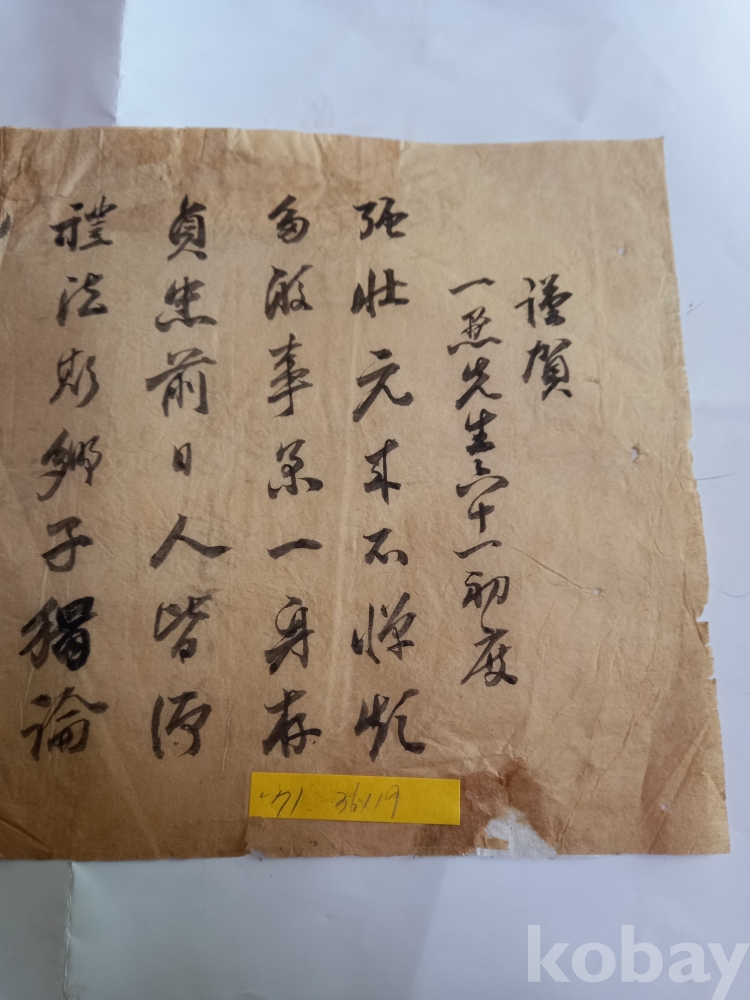 謹賀
一先生六十一初度
强壯元來不憚煩
多般事業一身存
貞忠前日人皆
禮法斯鄉子獨論
'71 36x19
kobay